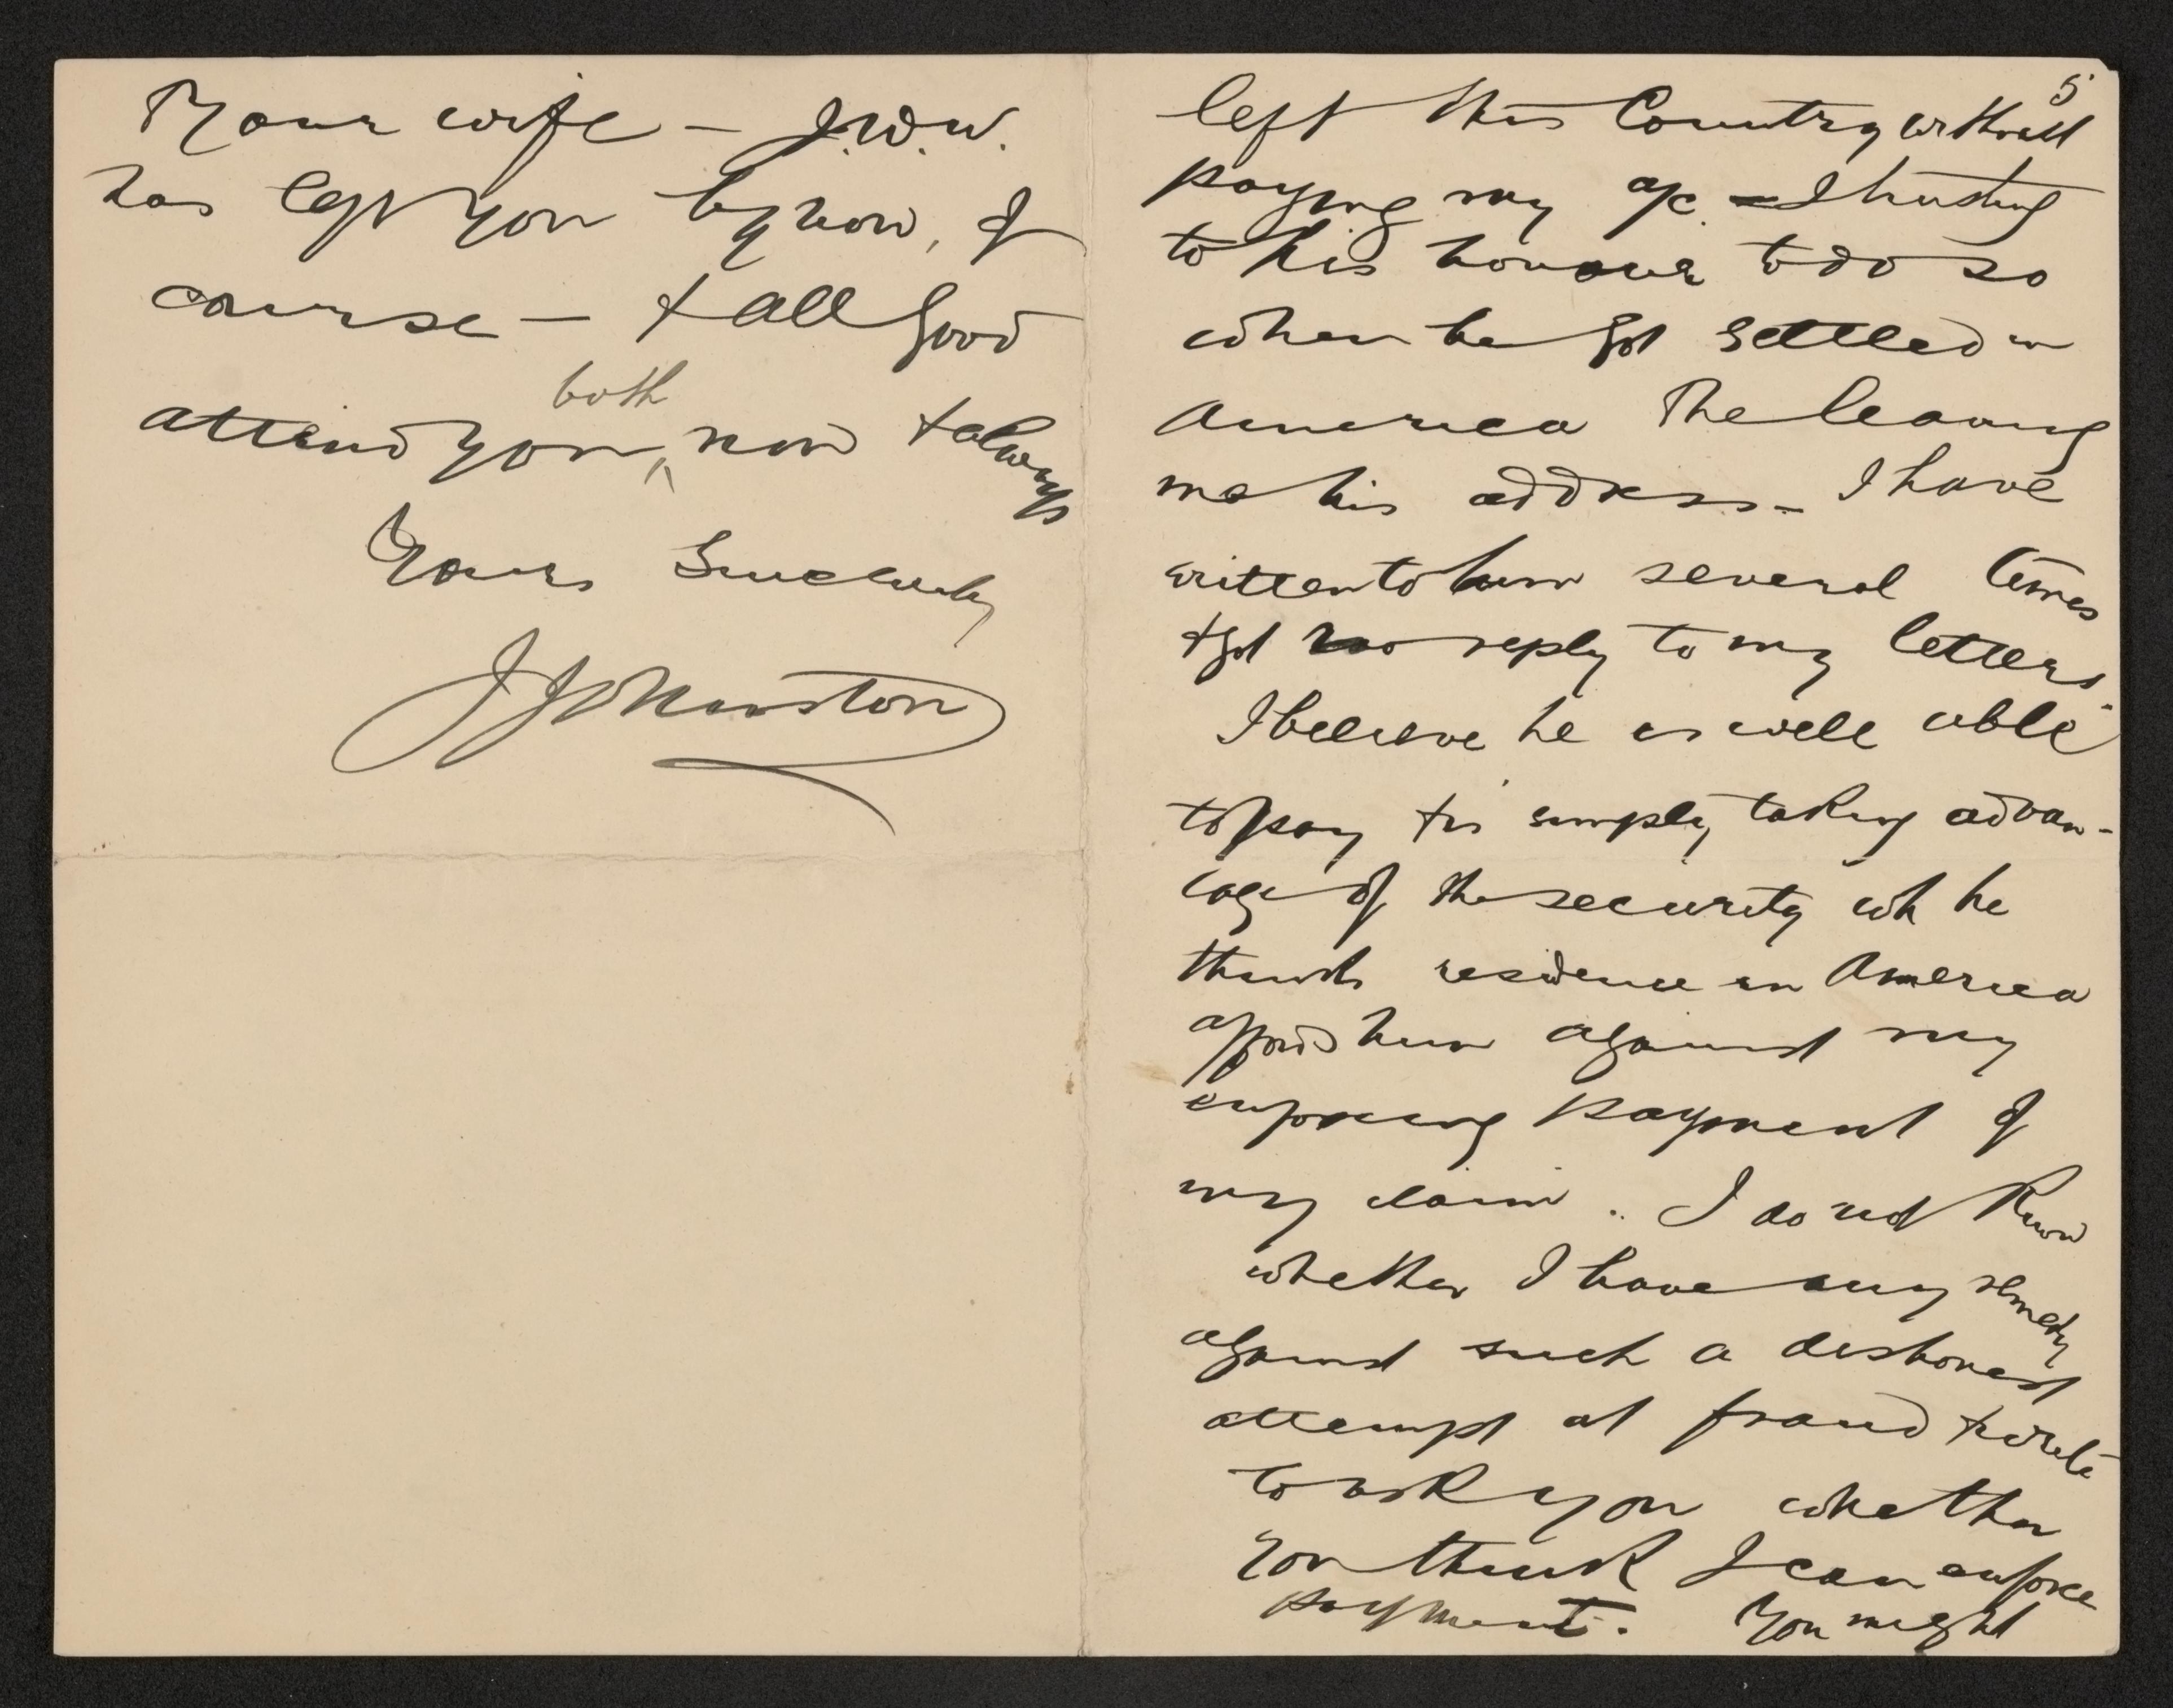 Your wife — J.W.W.
has left you by now, of
course — & all good
both
attend you, now & always
Yours Sincerely
J Johnston
5
left this Country without
paying my a/c. — I trusting
to his honour to do so
when he got settled in
America & he leaving
me his address — I have
written to him several times
& got no reply to my letters
I believe he is well able
to pay & is simply taking advan-
tage of the security wh he
thinks residence in America
affords him against my
enforcing payment of
my claim. I do not know
whether I have any remedy
against such a dishonest
attempt at fraud & write
to ask you whether
you think I can enforce
payment. You might